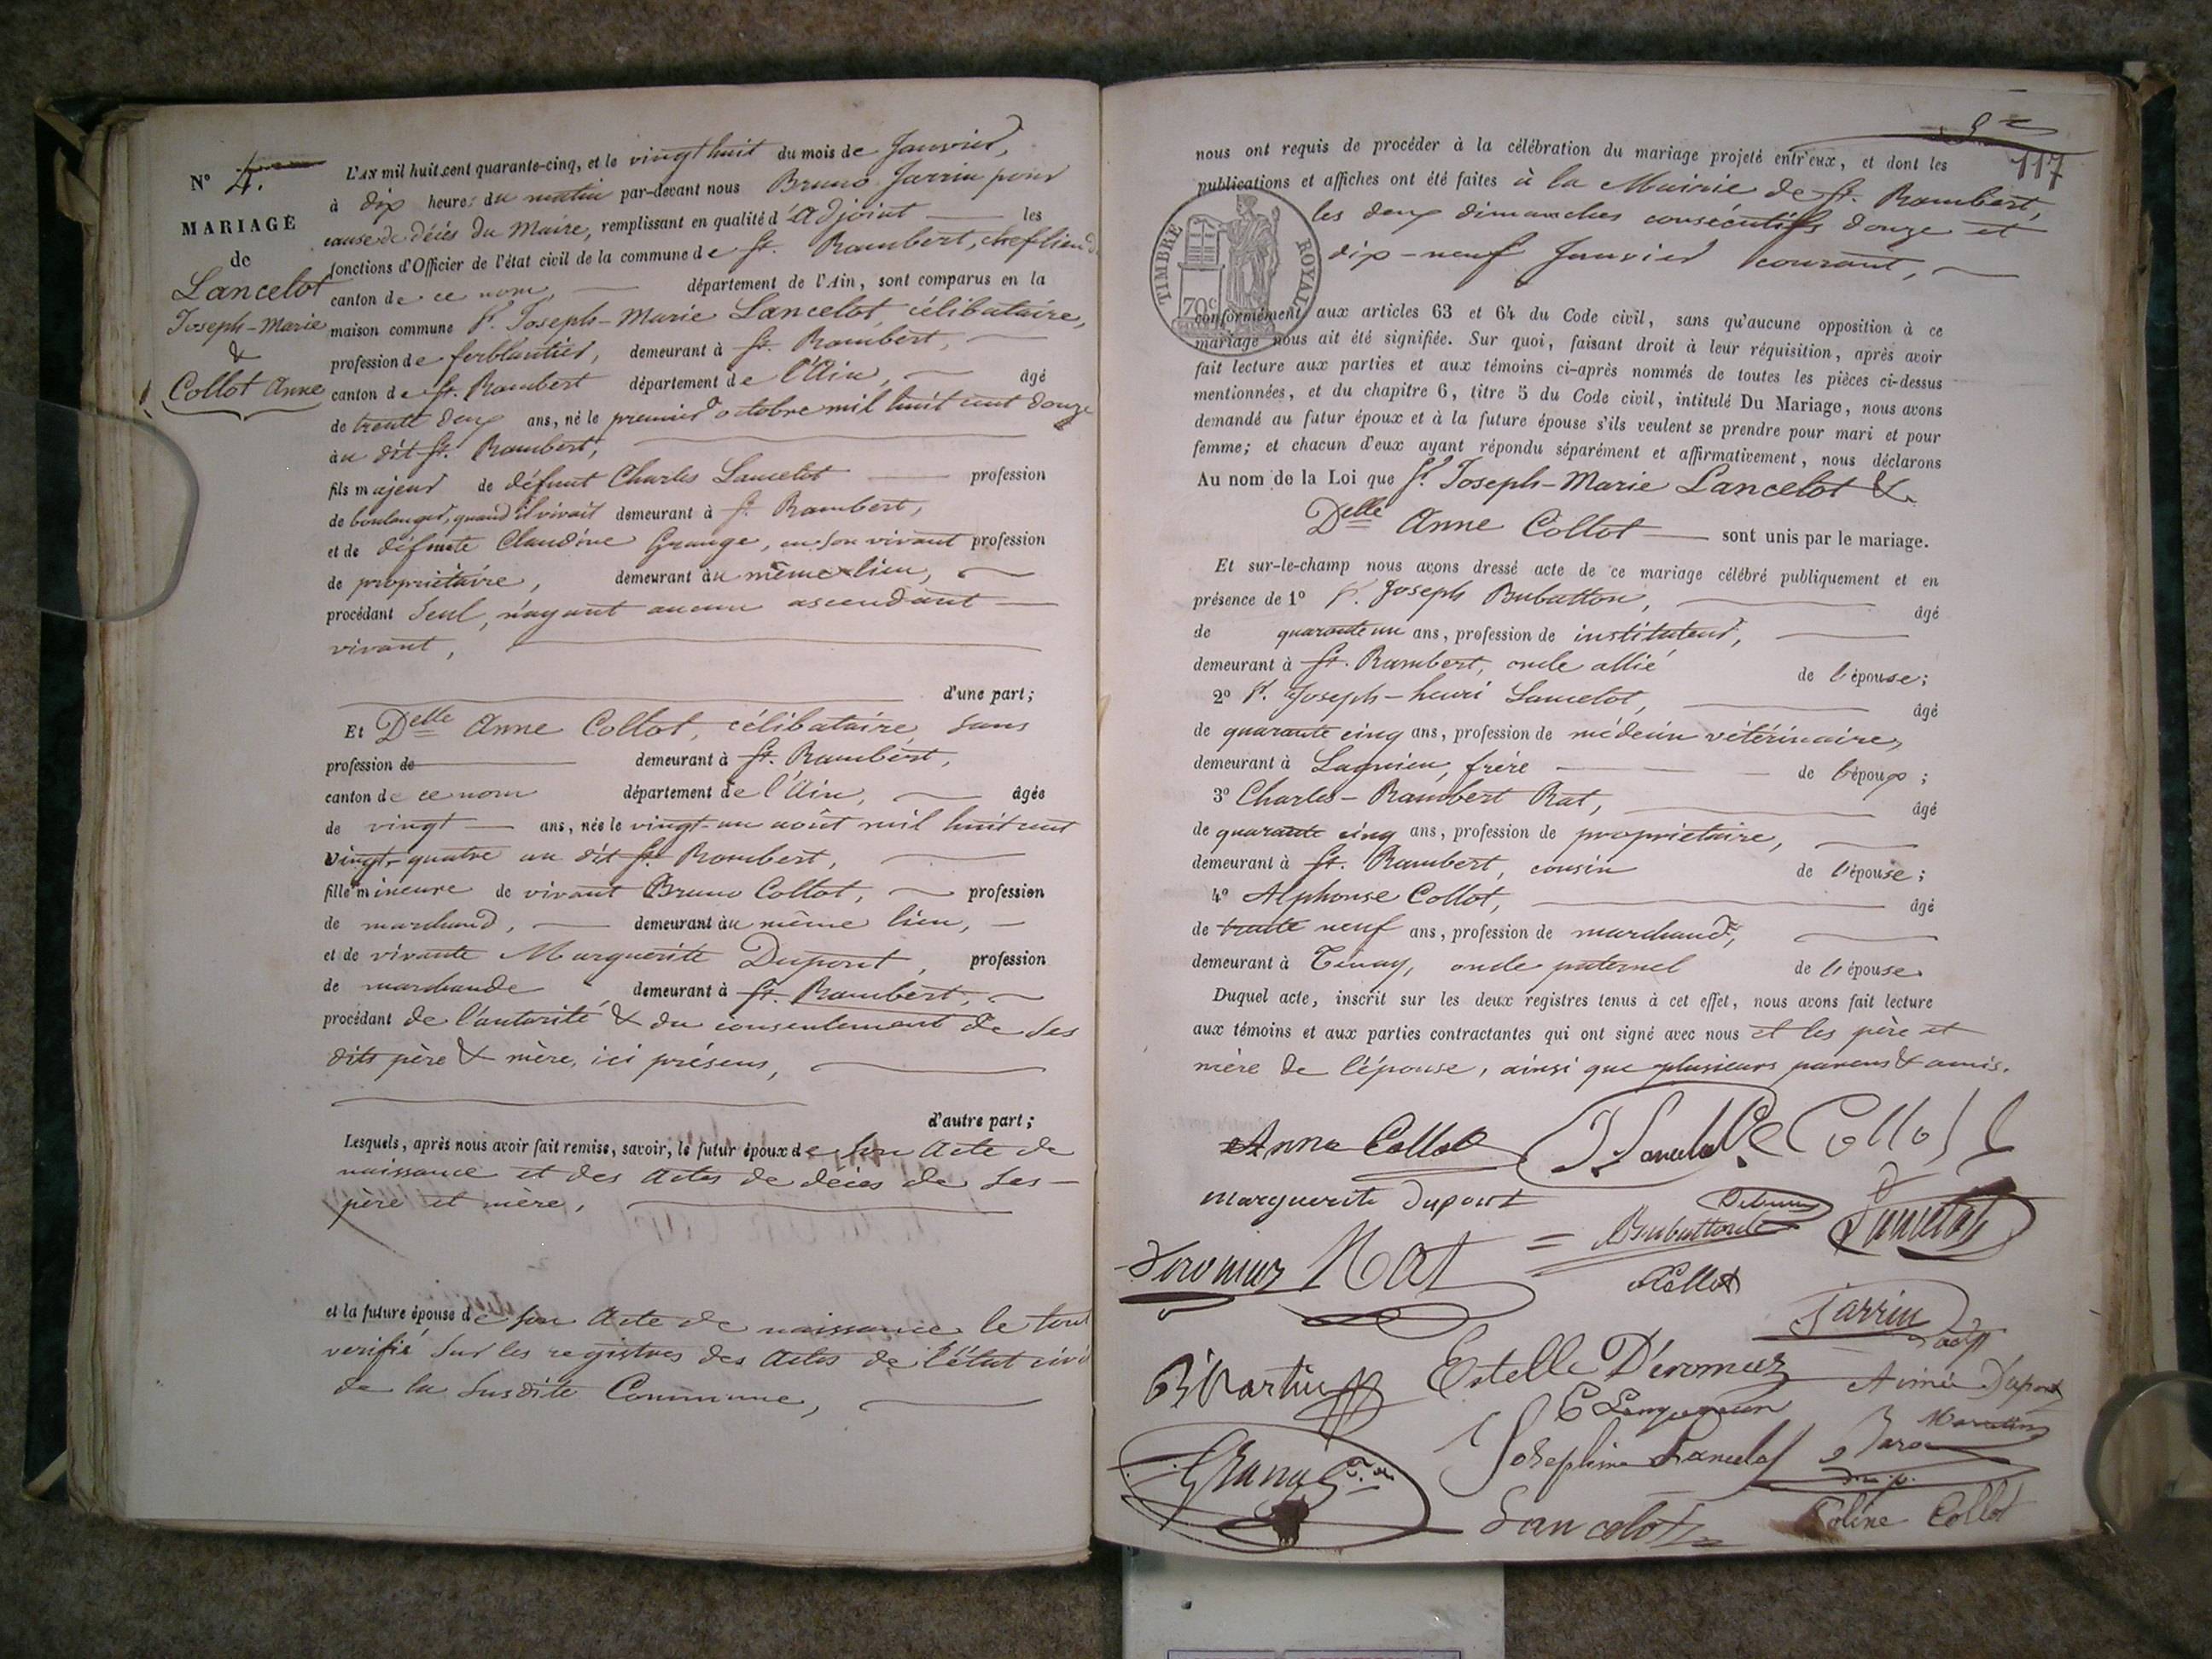 N° 4.
MARIAGE
de
Lancelot
Joseph-Marie
&
Collot Anne
L'AN mil huit cent quarante-cinq, et le vingt huit du mois de Janvier,
à dix heures du matin par-devant nous Bruno Jarrin pour
cause de décès du Maire, remplissant en qualité d'Adjoint les
fonctions d'Officier de l'état civil de la commune de St. Rambert, chef lieu d
canton de ce nom, département de l'Ain, sont comparus en la
maison commune Sr. Joseph-Marie Lancelot, célibataire,
profession de ferblantier, demeurant à St. Rambert,
canton de St. Rambert département de l'Ain, âgé
de trente deux ans, né le premier octobre mil huit cent douze
au dit St. Rambert,
fils majeur de défunt Charles Lancelot profession
de boulanger, quand il vivait demeurant à St. Rambert,
et de défunte Claudine Grange, en son vivant profession
de propriétaire, demeurant au même lieu,
procédant seul, n'ayant aucun ascendant
vivant,
d'une part;
Et Delle Anne Collot, célibataire, sans
profession de demeurant à St. Rambert,
canton de ce nom département de l'Ain, âgée
de vingt ans, née le vingt-un août mil huit cent
vingt-quatre au dit St. Rambert,
fille mineure de vivant Bruno Collot, profession
de marchand, demeurant au même lieu,
et de vivante Marguerite Dupont, profession
de marchande demeurant à St. Rambert,
procédant de l'autorité & du consentement de ses
dits père & mère, ici présens,
d'autre part;
Lesquels, après nous avoir fait remise, savoir, le futur époux de son Acte de
naissance et des Actes de décès de ses
père et mère,
et la future épouse de son Acte de naissance le tout
vérifié sur les registres des Actes de l'état civil
de la susdite Commune,
117
nous ont requis de procéder à la célébration du mariage projeté entr'eux, et dont les
publications et affiches ont été faites à la Mairie de St. Rambert,
les deux dimanches consécutifs douze et
dix-neuf Janvier courant,
TIMBRE ROYAL
70c
conformément aux articles 63 et 64 du Code civil, sans qu'aucune opposition à ce
mariage nous ait été signifiée. Sur quoi, faisant droit à leur réquisition, après avoir
fait lecture aux parties et aux témoins ci-après nommés de toutes les pièces ci-dessus
mentionnées, et du chapitre 6, titre 5 du Code civil, intitulé Du Mariage, nous avons
demandé au futur époux et à la future épouse s'ils veulent se prendre pour mari et pour
femme; et chacun d'eux ayant répondu séparément et affirmativement, nous déclarons
Au nom de la Loi que Sr. Joseph-Marie Lancelot &
Delle Anne Collot sont unis par le mariage.
Et sur-le-champ nous avons dressé acte de ce mariage célébré publiquement et en
présence de 1° Sr. Joseph Bubatton, âgé
de quarante un ans, profession de instituteur,
demeurant à St. Rambert, oncle allié de l'épouse;
2° Sr. Joseph-henri Lancelot, âgé
de quarante cinq ans, profession de médecin vétérinaire,
demeurant à Lagnieu, frère de l'époux;
3° Charles-Rambert Rat, âgé
de quarante cinq ans, profession de propriétaire,
demeurant à St. Rambert, cousin de l'épouse;
4° Alphonse Collot, âgé
de trente neuf ans, profession de marchand,
demeurant à Tenay, oncle paternel de l'épouse.
Duquel acte, inscrit sur les deux registres tenus à cet effet, nous avons fait lecture
aux témoins et aux parties contractantes qui ont signé avec nous et les père et
mère de l'épouse, ainsi que plusieurs parens & amis.
Anne Collot J. Lancelot Collot
marguerite dupont
Bubatton Lancelot
Deromas Rat
Collot
Jarrin
adjt
Estelle Deromas Aimée Dupont
Josephine Lancelot
Grange
Lancelot Coline Collot